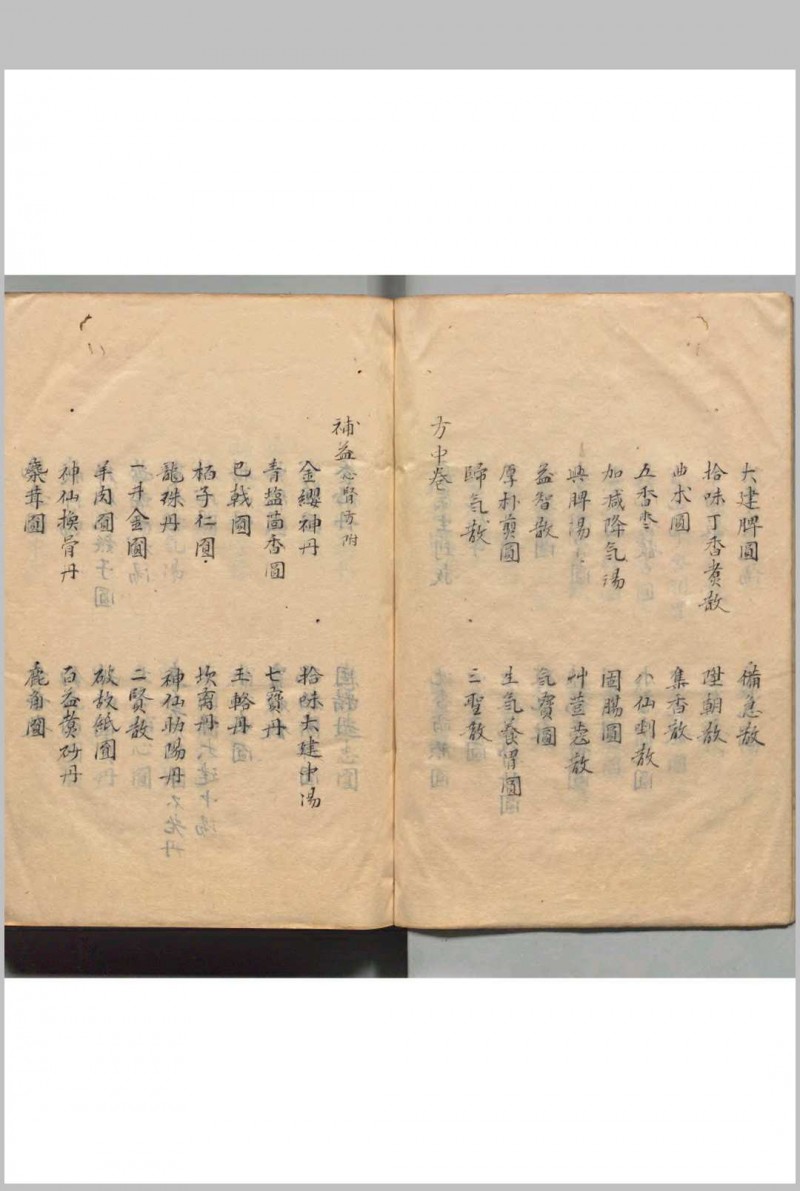 大建脾圓 備急散
拾味丁香煑散
曲朮圓 集香散
五香枣 小仙剉散
加减降気湯 固腸圓
興脾湯 艸荳蔲散
益智散 気寶圓
厚朴煎圓 生気養胃圓
歸気散 三聖散
方中巻
補益 腎方附
金纓神丹 拾味大建中湯
青塩茴香圓 七寶丹
巴戟圓 玉輅丹
栢子仁圓 坎离丹
龍珠丹 神仙助陽丹
一井金圓 二賢散
羊肉圓 破故紙圓
神仙換骨丹 百益黄砂丹
麋茸圓 鹿角圓